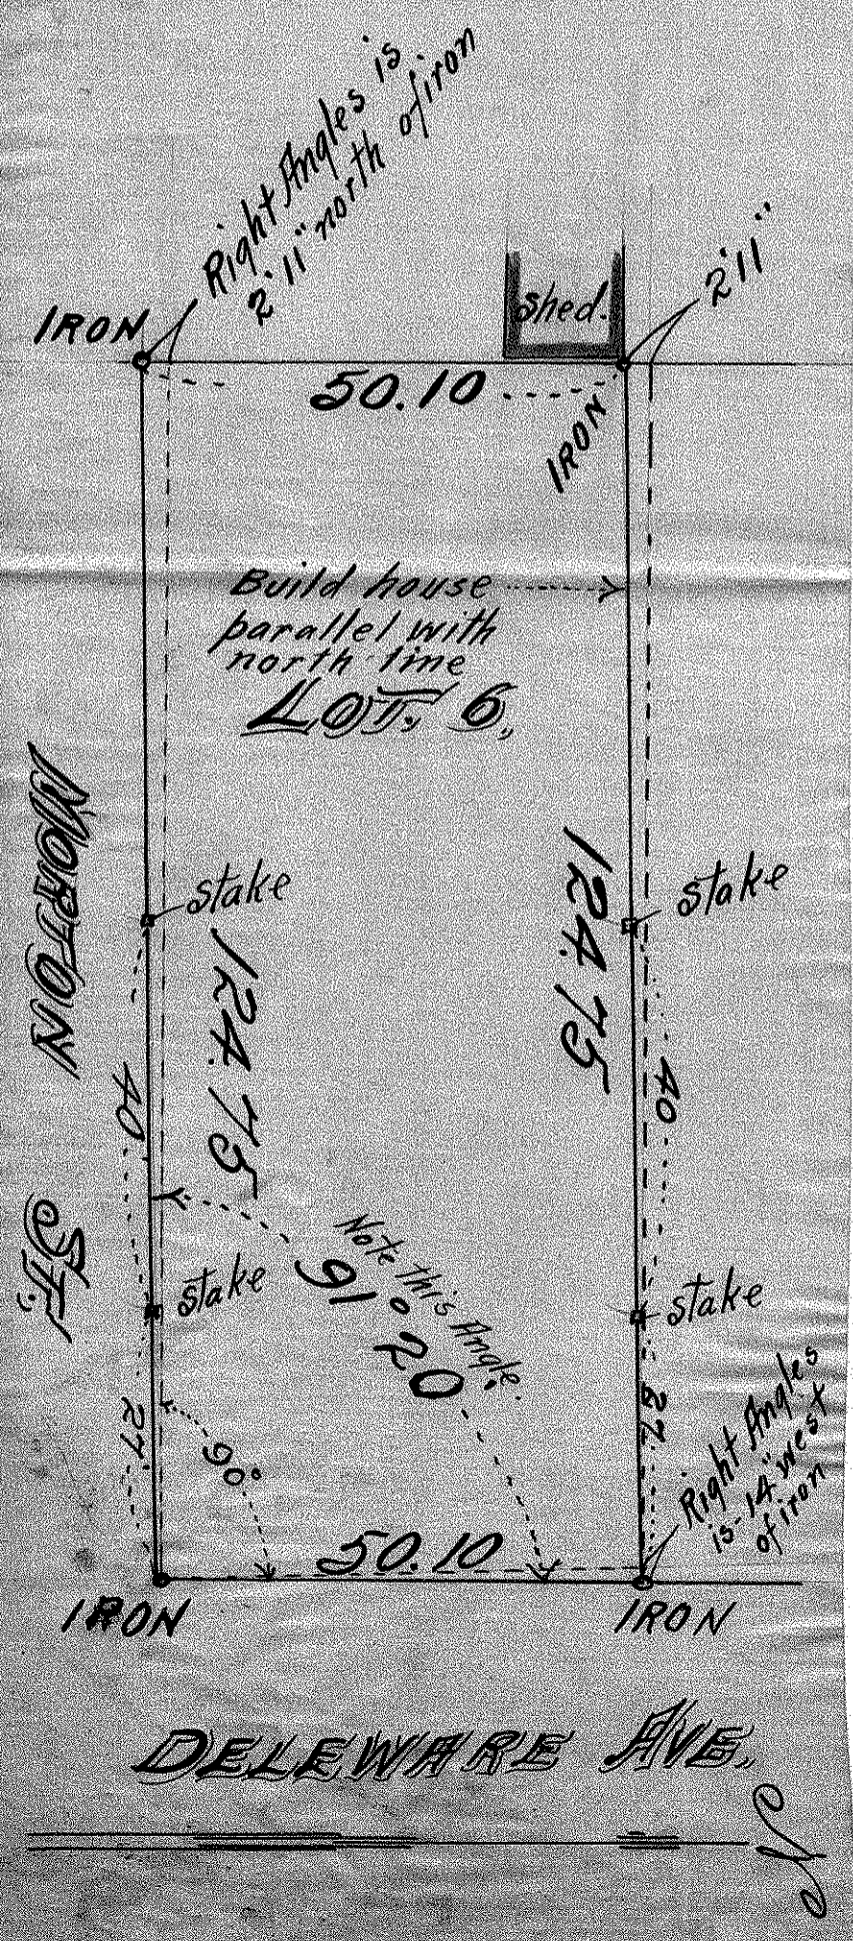 Right Angles is
2'11" north of iron
2'11"
IRON
shed.
50.10
IRON
Build house
parallel with
north line
LOT. 6,
MORTON ST.
stake
stake
124.75
124.75
40
40
Note this Angle.
91° 20
stake
stake
27
27
90°
Right Angles
is 14" west
of iron
50.10
IRON
IRON
DELEWARE AVE.
N